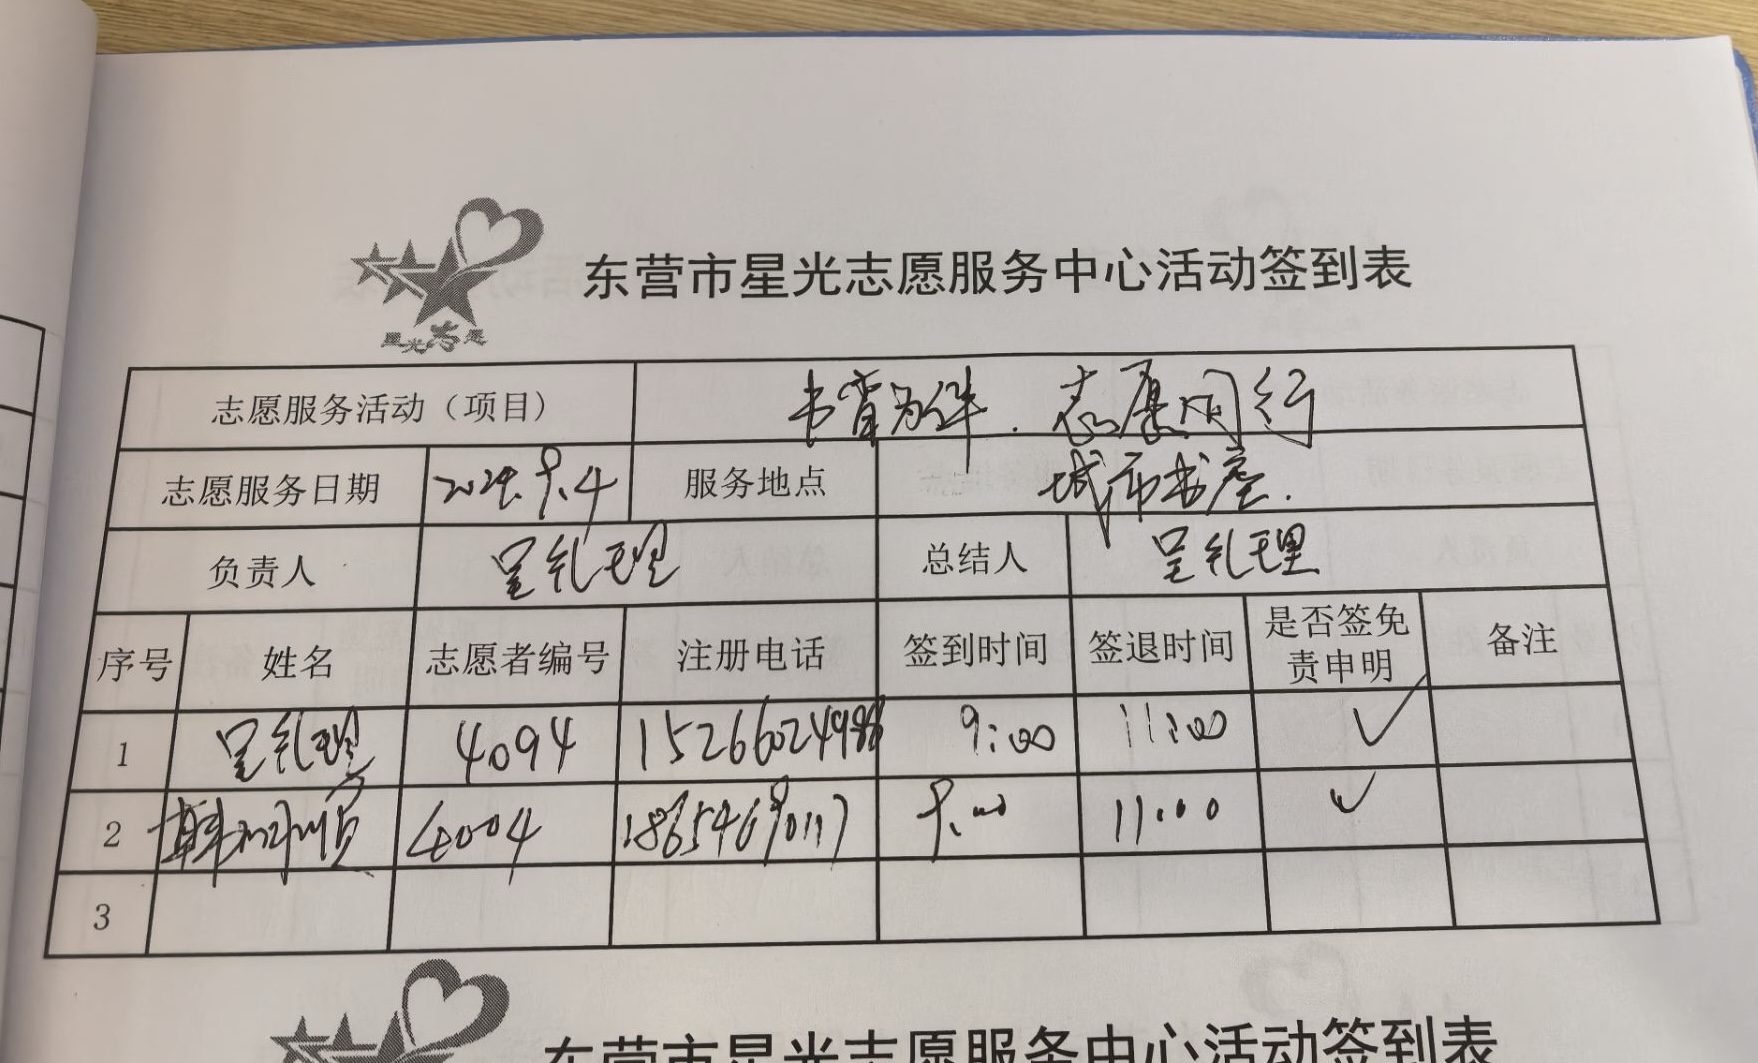 东营市星光志愿服务中心活动签到表
星光志愿
志愿服务活动（项目） 书香为伴．志愿同行
志愿服务日期 9.4 服务地点 城市书房．
负责人 总结人
序号 姓名 志愿者编号 注册电话 签到时间 签退时间 是否签免责申明 备注
1 4094 9:00 11:00 ✓
2 4004 9:00 11:00 ✓
3
东营市星光志愿服务中心活动签到表